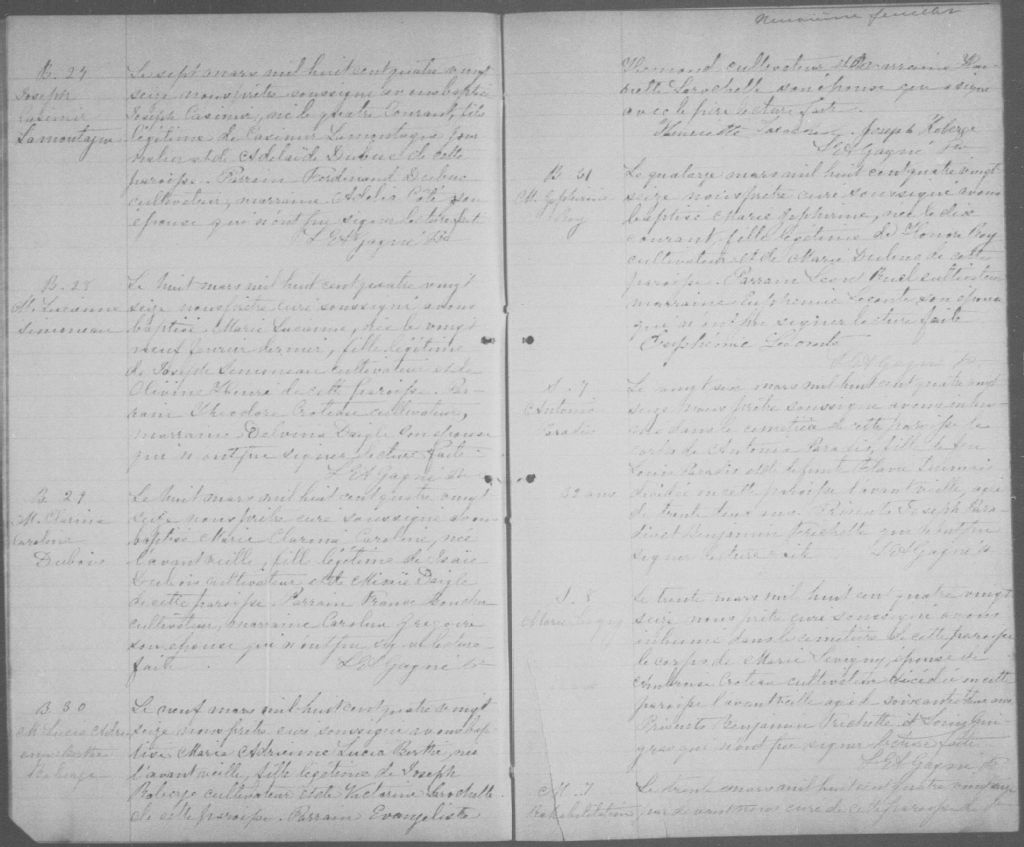 B. 27
Joseph
Casimir
Lamontagne
Le sept mars mil huit cent quatre vingt
seize nous prêtre soussigné avons baptisé
Joseph Casimir, né le quatre courant, fils
légitime de Casimir Lamontagne jour
nalier et de Adelaïde Dubuc de cette
paroisse. Parrain Ferdinand Dubuc
cultivateur, marraine Adelia Côté son
épouse qui n'ont pu signer lecture faite
L E A Gagné Ptr
B. 28
M. Lucienne
Simoneau
Le huit mars mil huit cent quatre vingt
seize nous prêtre curé soussigné avons
baptisé Marie Lucienne, née le vingt
neuf février dernier, fille légitime
de Joseph Simoneau cultivateur et de
Olivine Henri de cette paroisse. Par
rain Theodore Croteau cultivateur,
marraine Delvina Daigle son épouse
qui n'ont pu signer lecture faite.
L E A Gagné Ptr
B 29
M. Clarina
Caroline
Dubois
Le huit mars mil huit cent quatre vingt
seize nous prêtre curé soussigné avons
baptisé Marie Clarina Caroline, née
l'avant veille, fille légitime de Isaïe
Dubois cultivateur et de Daigle
de cette paroisse. Parrain France
cultivateur, marraine Caroline Gregoire
son épouse qui n'ont pu signer lecture
faite.
L E A Gagné Ptr
B 30
M. Lucia Adri
enne Berthe
Roberge
Le neuf mars mil huit cent quatre vingt
seize nous prêtre curé soussigné avons bap
tisé Marie Adrienne Lucia Berthe, née
l'avant veille, fille légitime de Joseph
Roberge cultivateur et de Victorine Larochelle
de cette paroisse. Parrain Evangeliste
feuillet
cultivateur et Marraine Hen
riette Larochelle son épouse qui a signé
avec le père lecture faite.
Henriette Joseph Roberge
L E A Gagné Ptr
B 31
M. Zephirine
Roy
Le quatorze mars mil huit cent quatre vingt
seize nous prêtre curé soussigné avons
baptisé Marie Zephirine, née le dix
courant, fille légitime de Honoré Roy
cultivateur et de Marie Dubuc de cette
paroisse. Parrain Leon cultivateur
marraine Euphemie Lecomte son épouse
qui n'ont pu signer lecture faite
Euphemie Lecomte
L E A Gagné Ptr
S. 7
Antonia
Paradis
32 ans
Le vingt six mars mil huit cent quatre vingt
seize nous prêtre soussigné avons inhu
mé dans le cimetière de cette paroisse le
corps de Antonia Paradis, fille de feu
Louis Paradis et de défunte
décédée en cette paroisse l'avant veille, agée
de trente deux ans. Présents Joseph Para
dis et Benjamin Frechette qui n'ont pu
signer lecture faite. L E A Gagné Ptr
S. 8
Marie Sevigny
Le trente mars mil huit cent quatre vingt
seize nous prêtre curé soussigné avons
inhumé dans le cimetière de cette paroisse
le corps de Marie Sevigny, épouse de
Ambroise Croteau cultivateur décédée en cette
paroisse l'avant veille agée de soixante ans
Présents Benjamin Frechette et Louis
qui n'ont pu signer lecture faite.
L E A Gagné Ptr
M. 7
Rehabilitation
Le trente mars mil huit cent quatre vingt seize
par devant nous curé de cette paroisse de